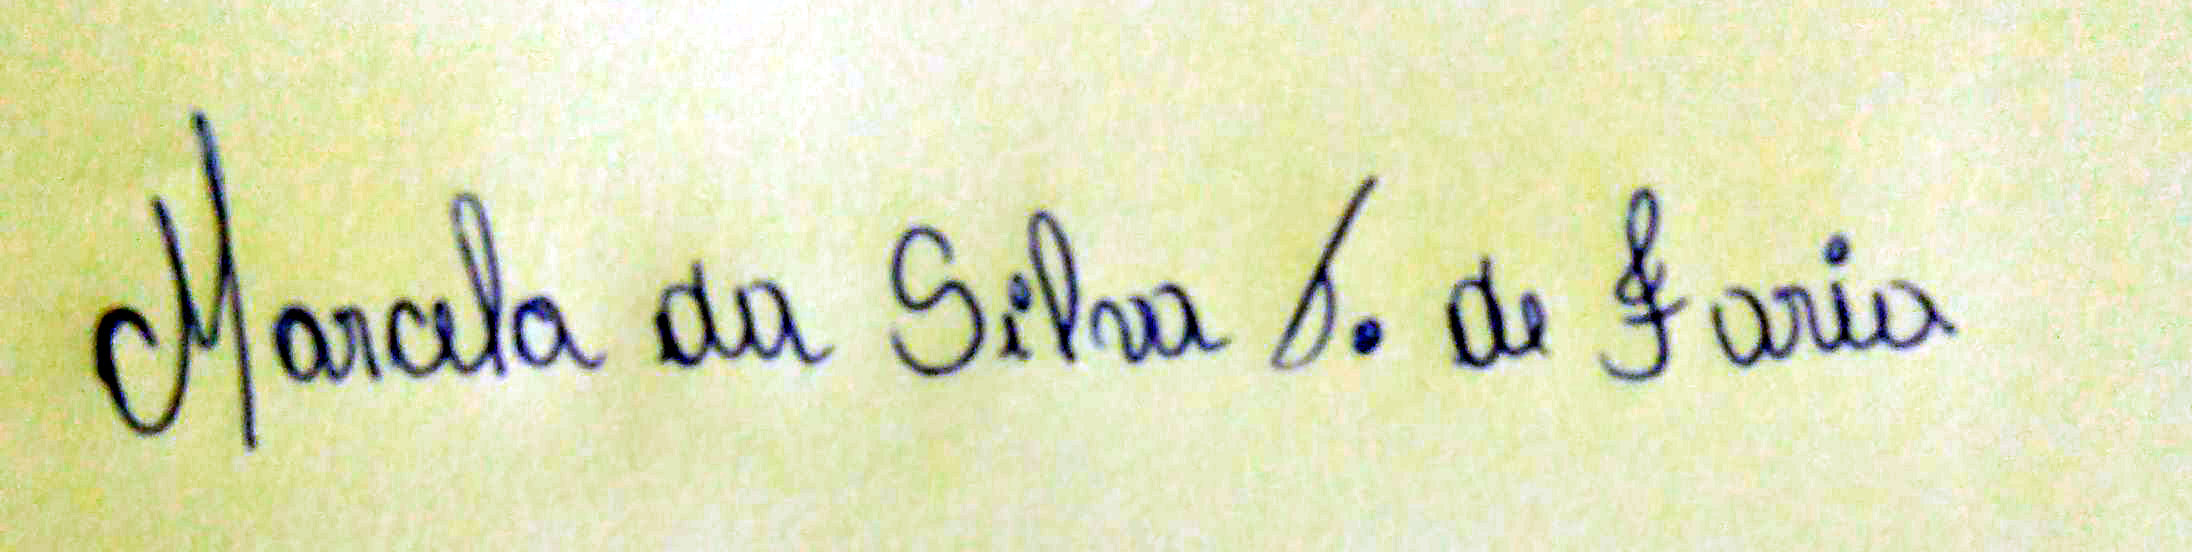 Marcela da Silva S. de Faria